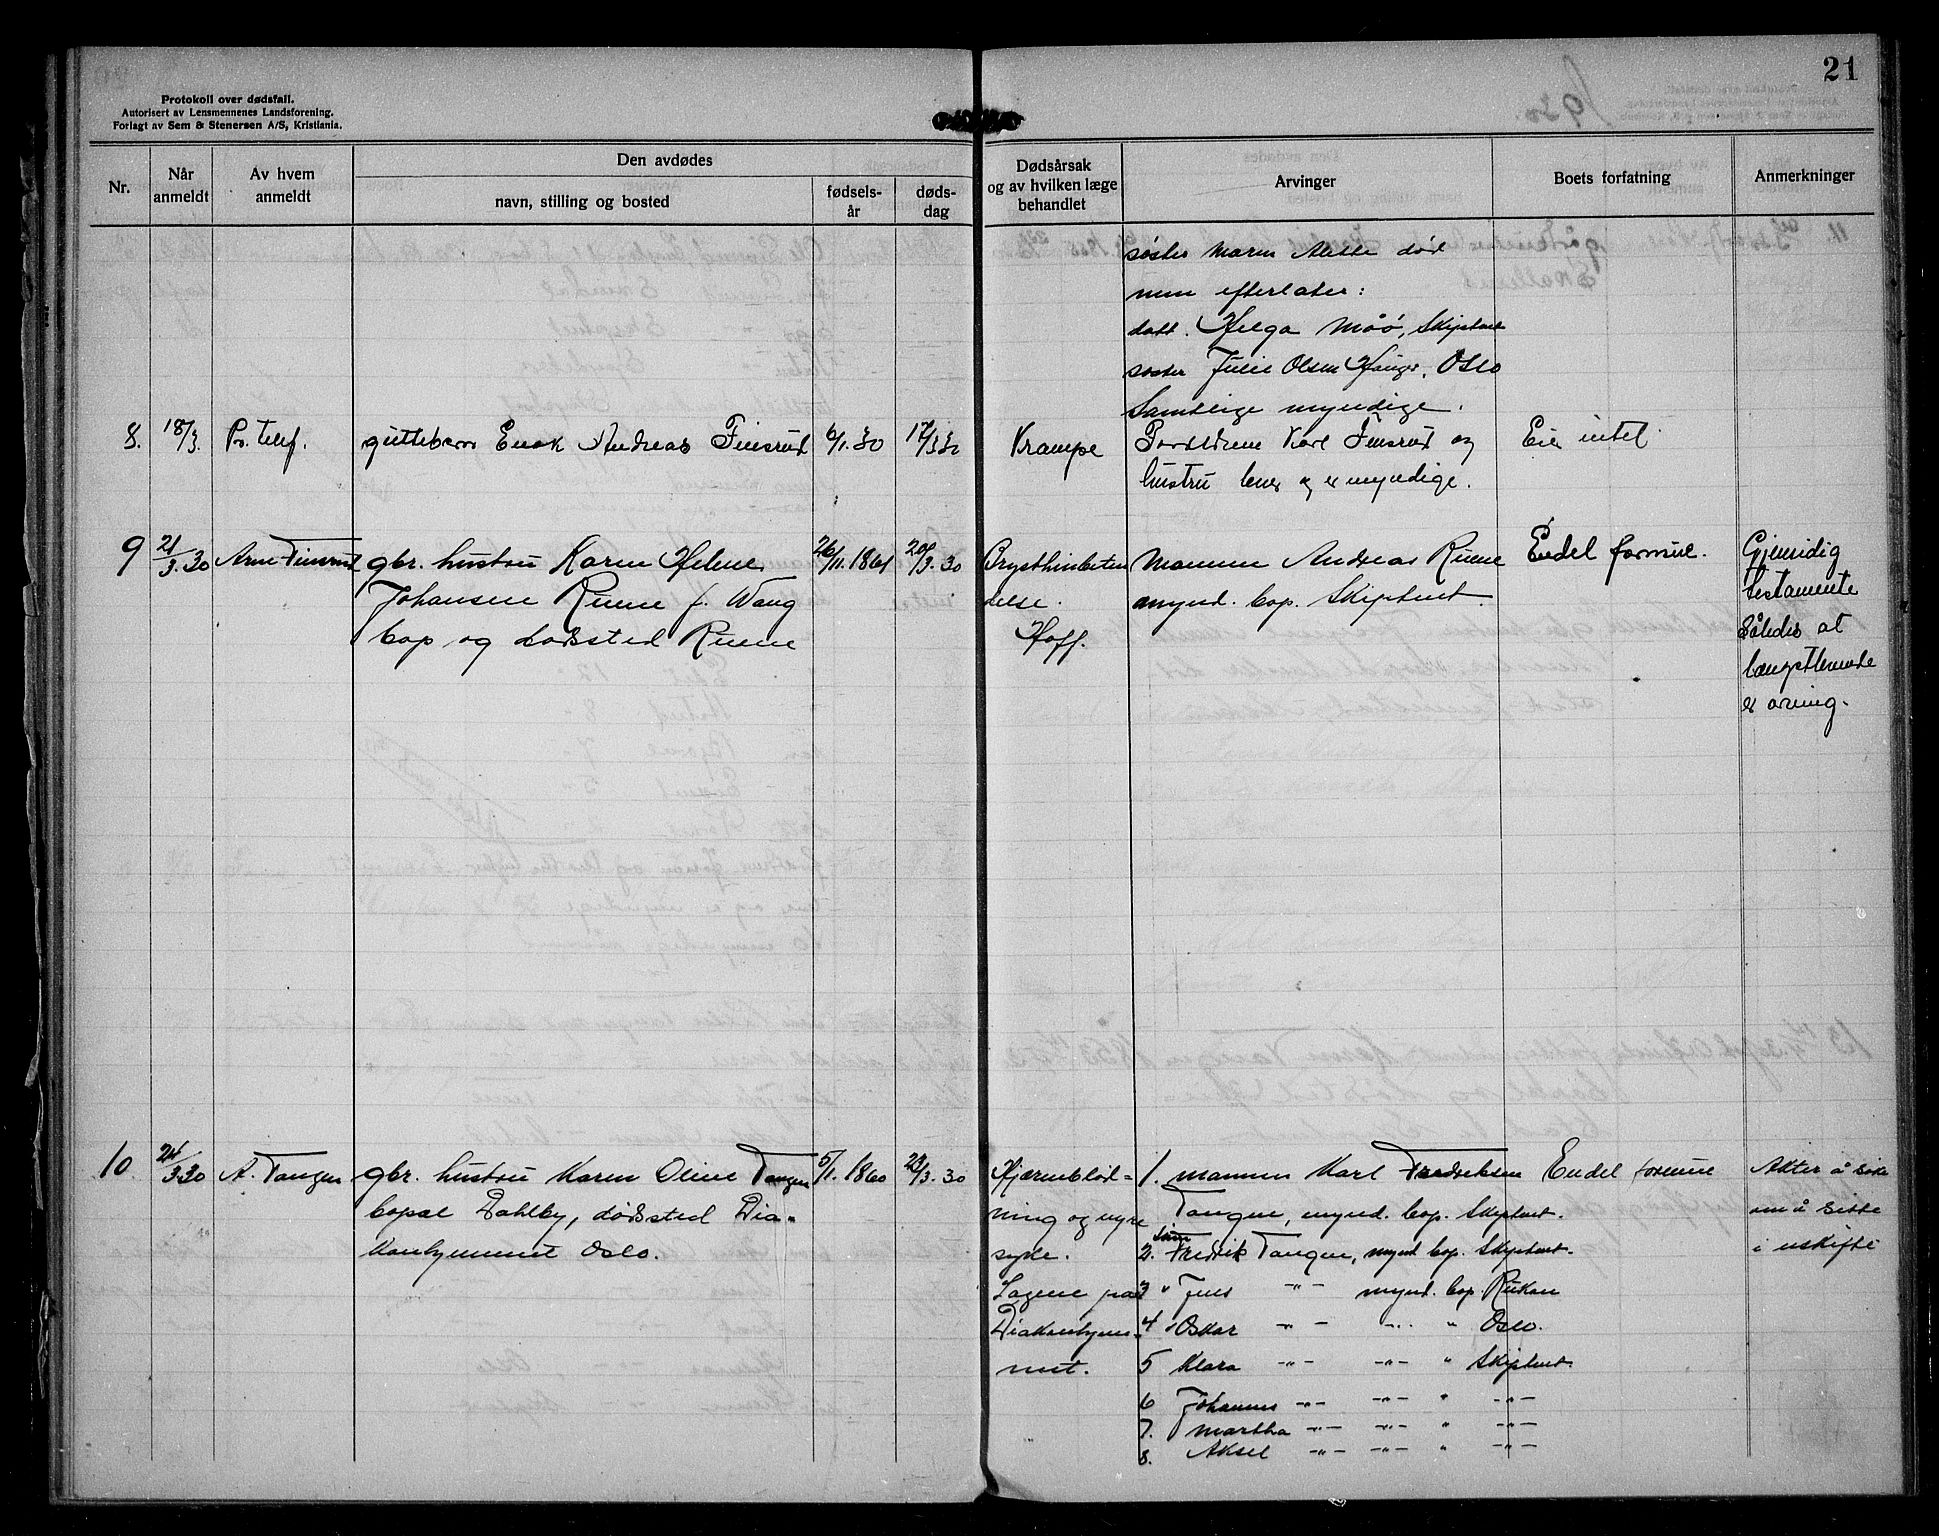 21
1930.
Protokoll over dødsfall.
Autorisert av Lensmennenes Landsforening.
Forlagt av Sem & Stenersen A/S, Kristiania.
Nr.
Når anmeldt
Av hvem anmeldt
Den avdødes
navn, stilling og bosted
fødsels-år
døds-dag
Dødsårsak og av hvilken læge behandlet
Arvinger
Boets forfatning
Anmerkninger
søster Maren Alette død
men efterlater:
datt. Helga Møó, Skiptvet
søster Julie Olsen Hauger, Oslo
Samtlige myndige.
8. 18/3. Pr. telf. guttebarn Enok Andreas Finsrud 6/1. 30 17/3 30 Krampe Forældrene Karl Finsrud og Eier intet.
hustru lever og er myndige.
9 21/3.30 Arne Finsrud gbr. hustru Karen Helene 26/11.1861 20/3.30 Brysthinbeten Mannen Andreas Ruene Endel formue. Gjensidig
Johansen Ruene f. Wang delse. mynd. bop. Skiptvet. testamente
bop og dødssted Ruene Hoff. Således at
længstlevende
er arving.
10 24/3.30 A. Tangen gbr. hustru Karen Oline Tangen 5/1.1860 23/3.30 Hjærneblød= 1. mannen Karl Fredriksen Endel formue Akter å søke
bopæl Dahlby, dødssted Dia- ning og nyre Tangen, mynd. bop. Skiptvet. om å sitte
konhjemmet Oslo. syke. 2. Søn Fredrik Tangen, mynd bop. Skiptvet. i uskifte
Lægene på 3 " Jens -"- mynd. bop. Rukan
Diakonhjem- 4 " Oskar -"- -"- " Oslo.
met. 5 Klara -"- -"- " Skiptvet.
6 Johannes -"- -"- " -"-
7. Martha -"- -"- " -"-
8. Aksel -"- -"- " -"-